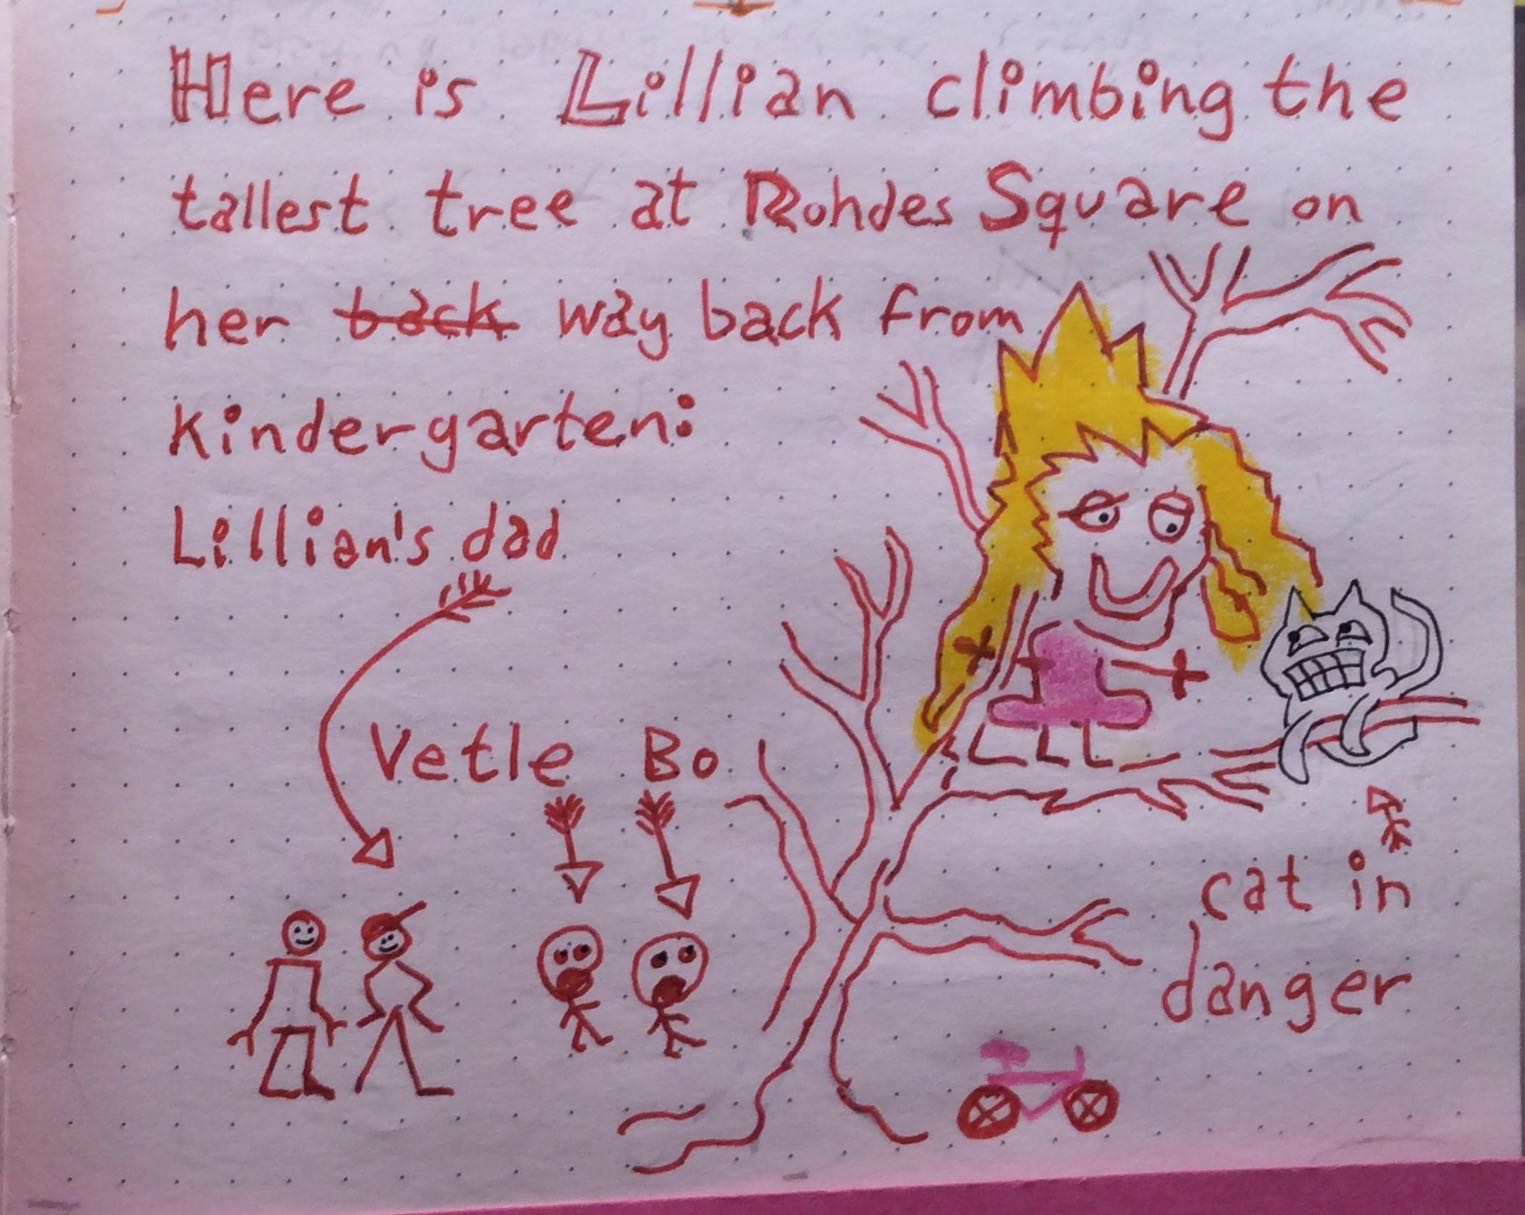 Here is Lillian climbing the
tallest tree at Rohdes Square on
her back way back from
kindergarten:
Lillian's dad
Vetle Bo
cat in
danger